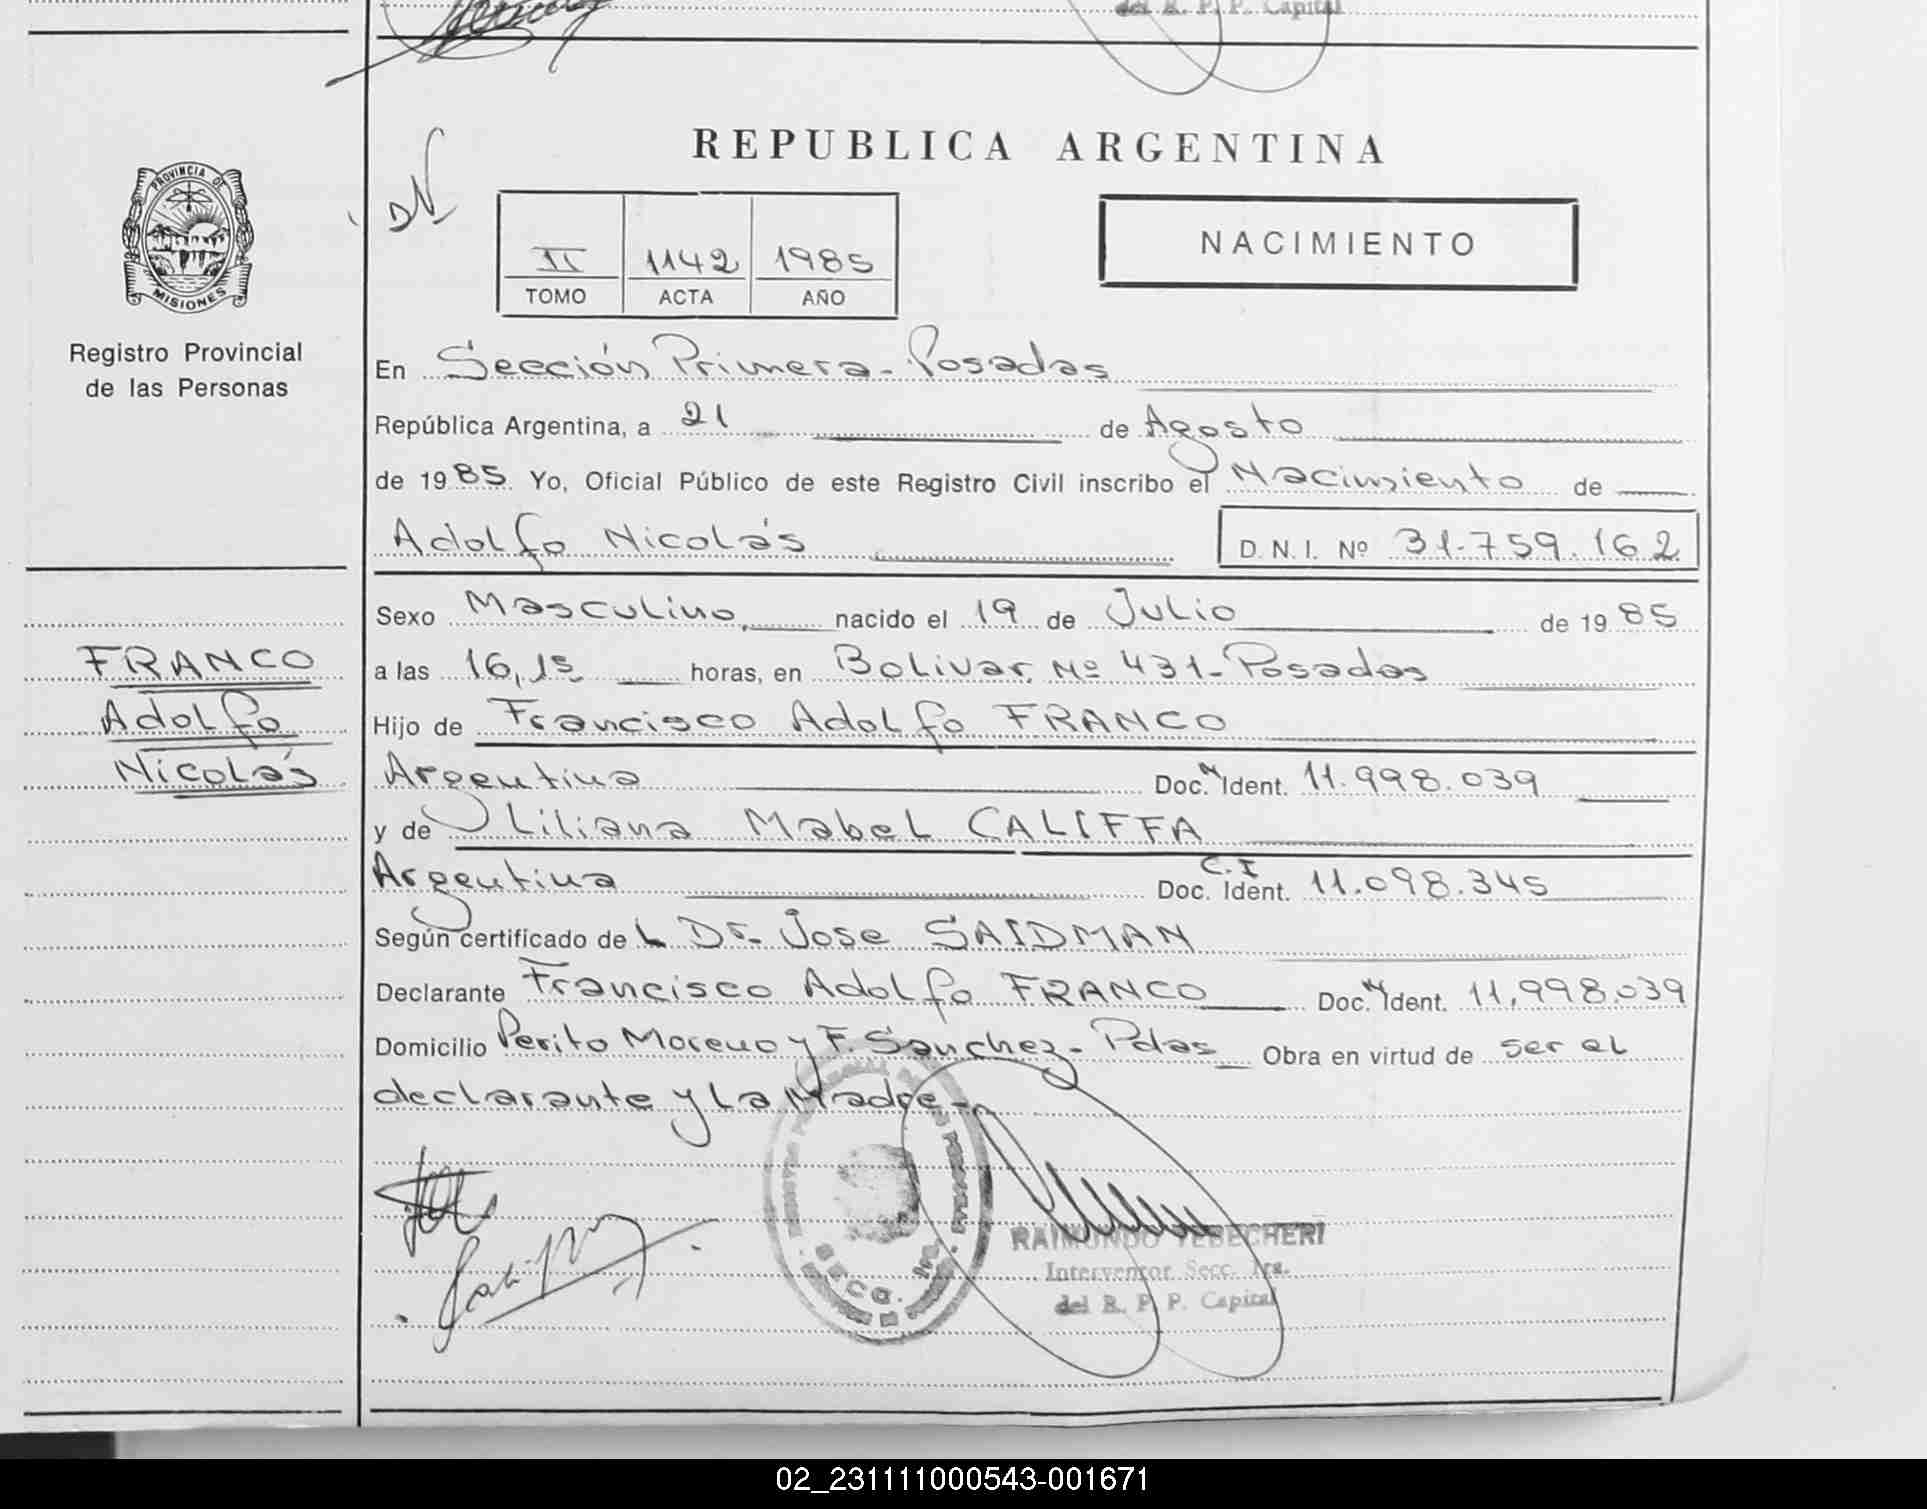 del R. P. P. Capital
REPUBLICA ARGENTINA
PROVINCIA DE
MISIONES
Registro Provincial
de las Personas
II 1142 1985
TOMO ACTA AÑO
NACIMIENTO
En Sección Primera - Posadas
República Argentina, a 21 de Agosto
de 1985 Yo, Oficial Público de este Registro Civil inscribo el Nacimiento de
Adolfo Nicolás D. N. I. Nº 31.759.162
Sexo Masculino, nacido el 19 de Julio de 1985
a las 16,15 horas, en Bolivar Nº 431 - Posadas
FRANCO
Adolfo
Nicolás
Hijo de Francisco Adolfo FRANCO
Argentina Doc. Ident. 11.998.039
y de Liliana Mabel CALIFFA
Argentina Doc. C.I Ident. 11.098.345
Según certificado de L Dr. Jose SAIDMAN
Declarante Francisco Adolfo FRANCO Doc. Ident. 11.998.039
Domicilio Perito Moreno y F. Sanchez - Pdas Obra en virtud de ser el
declarante y La Madre -
SECC. 1ra.
RAIMUNDO YEBECHERI
Interventor Secc. 1ra.
del R. P. P. Capital
02_231111000543-001671